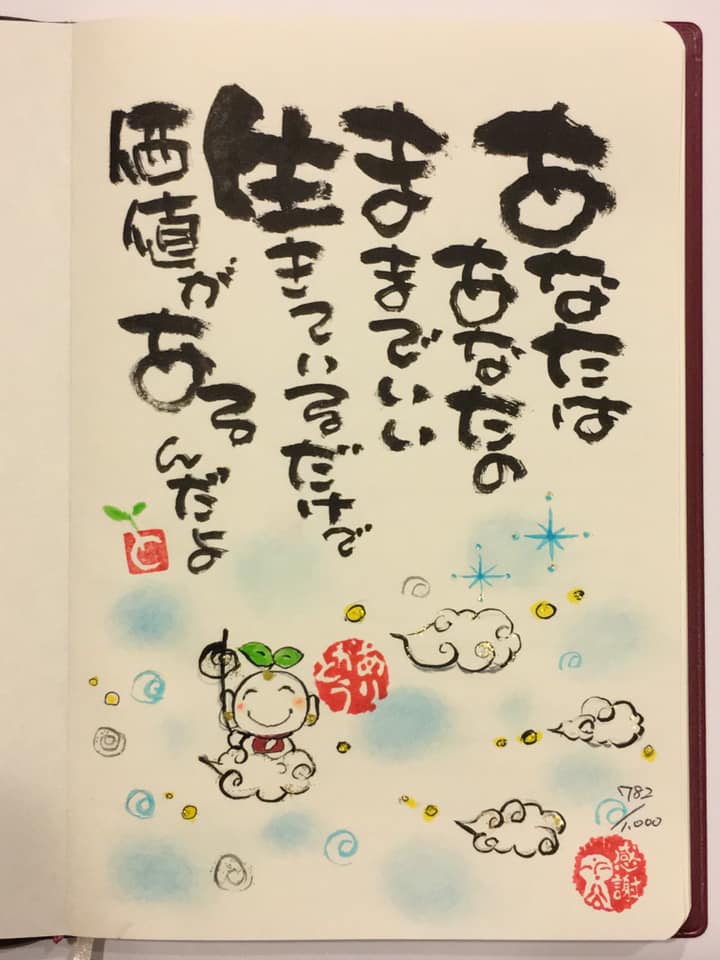 あなたは
あなたの
ままでいい
生きているだけで
価値が
あるんだよ
と
ありがとう
782/1,000
感謝